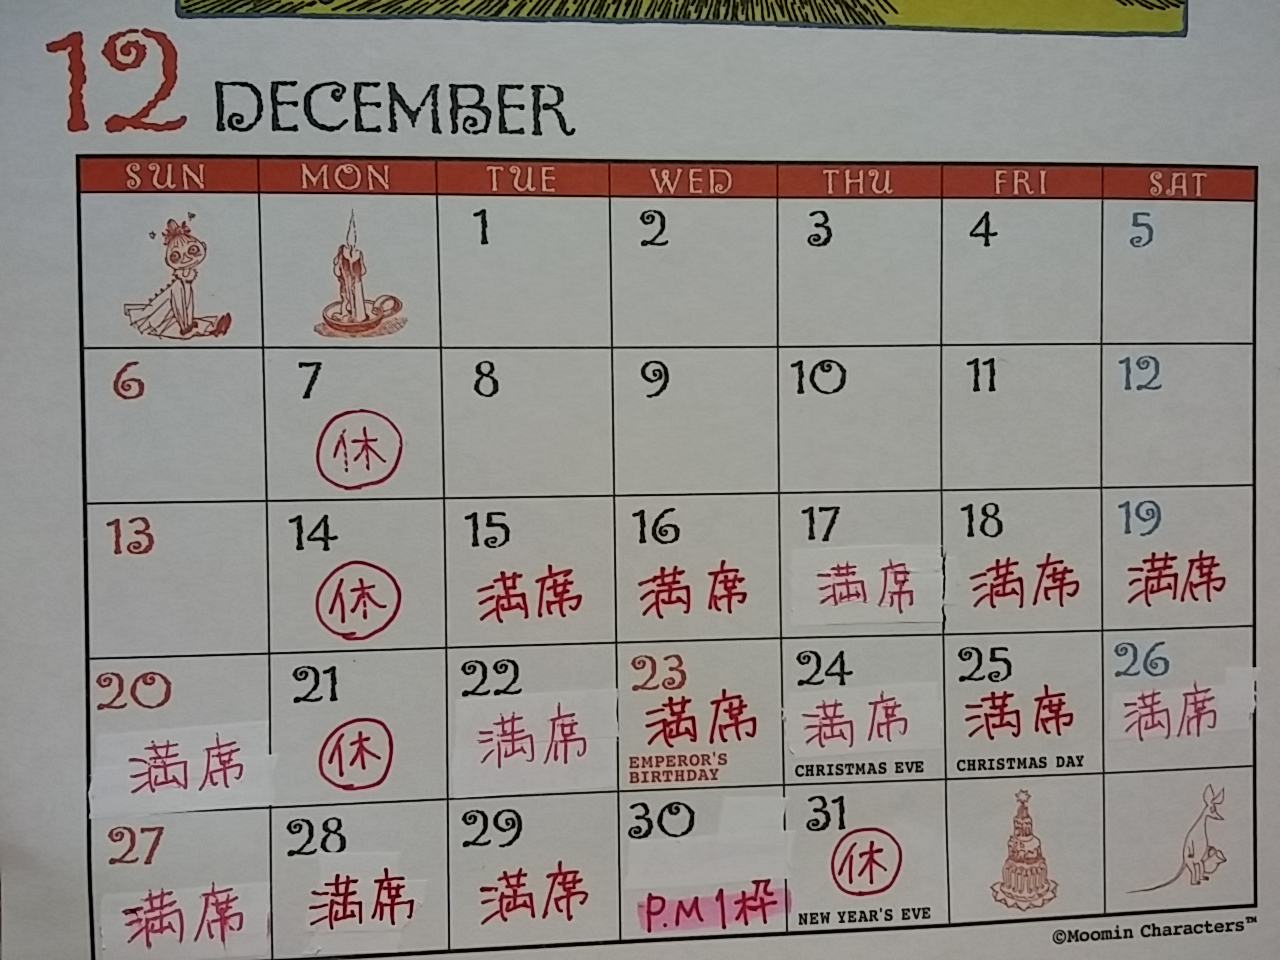 12 DECEMBER
SUN MON TUE WED THU FRI SAT
1 2 3 4 5
6 7 8 9 10 11 12
休
13 14 15 16 17 18 19
休 満席 満席 満席 満席 満席
20 21 22 23 24 25 26
満席 休 満席 満席 満席 満席 満席
EMPEROR'S
BIRTHDAY CHRISTMAS EVE CHRISTMAS DAY
27 28 29 30 31
満席 満席 満席 P.M 1枠 休
NEW YEAR'S EVE
©Moomin Characters™